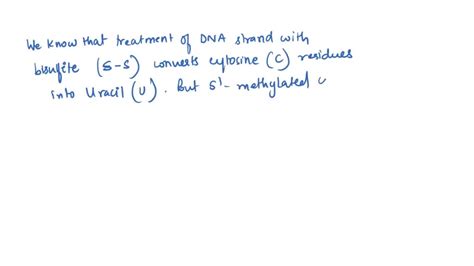 We know that treatment of DNA strand with
bisulfite (S-S) converts cytosine (C) residues
into Uracil (U). But 5'- methylated c